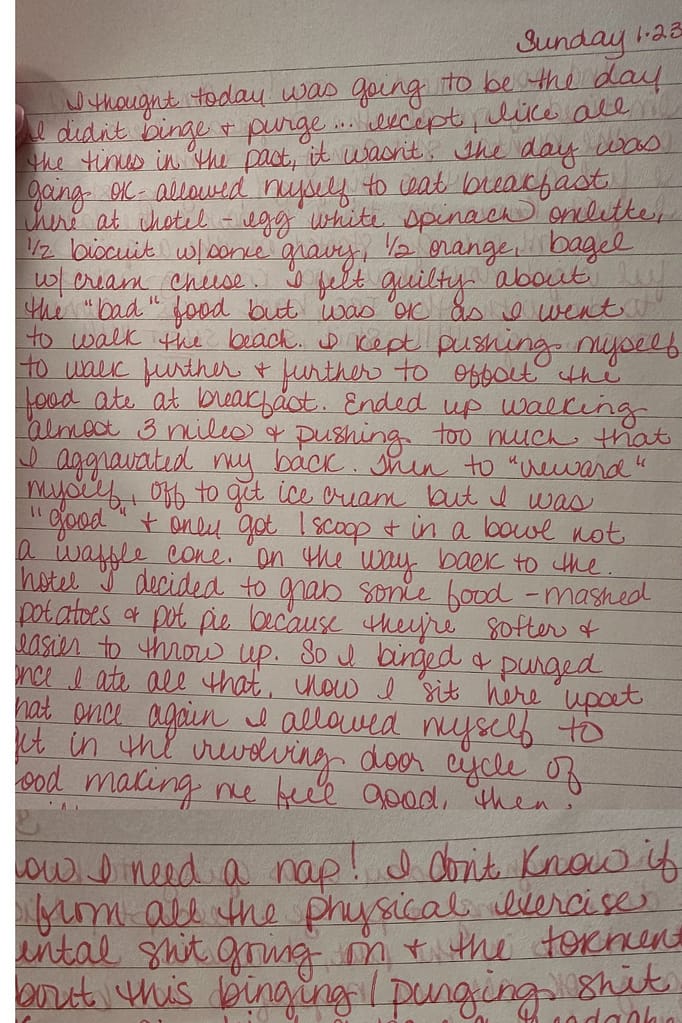 Sunday 1.23
I thought today was going to be the day
I didn't binge & purge... except, like all
the times in the past, it wasn't. The day was
going ok - allowed myself to eat breakfast
here at hotel - egg white spinach omlette,
1/2 biscuit w/some gravy, 1/2 orange, bagel
w/ cream cheese. I felt guilty about
the "bad" food but was ok as I went
to walk the beach. I kept pushing myself
to walk further & further to offset the
food ate at breakfast. Ended up walking
almost 3 miles & pushing too much that
I aggravated my back. Then to "reward"
myself, off to get ice cream but I was
"good" & only got 1 scoop & in a bowl not
a waffle cone. On the way back to the
hotel I decided to grab some food - mashed
potatoes & pot pie because they're softer &
easier to throw up. So I binged & purged
once I ate all that. Now I sit here upset
that once again I allowed myself to
in the revolving door cycle of
food making me feel good, then
now I need a nap! I don't know if
from all the physical exercise
mental shit going on & the torment
about this binging / purging shit